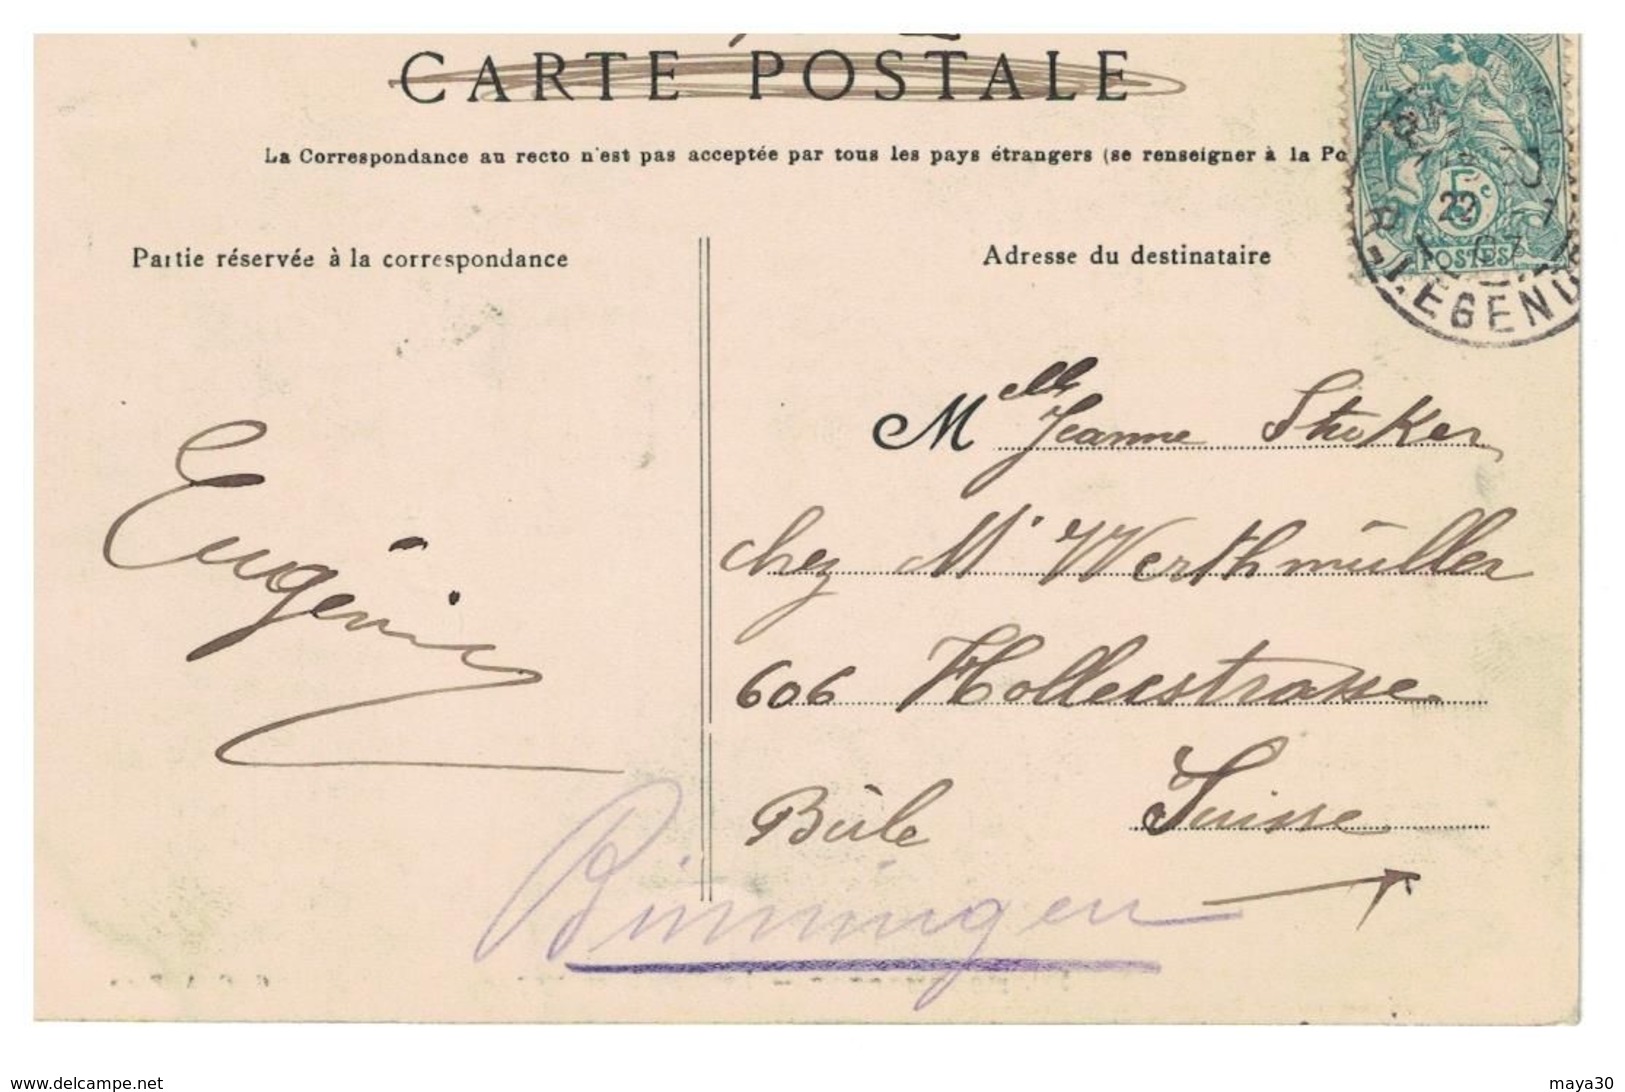 CARTE POSTALE
La Correspondance au recto n'est pas acceptée par tous les pays étrangers (se renseigner à la Po
5c
22
07
POSTES
R. LEGEND
Partie réservée à la correspondance
Adresse du destinataire
Mlle Jeanne
chez Mr Werthmüller
606 Hollerstrasse
Bâle Suisse
Eugénie
Binningen
www.delcampe.net
maya30